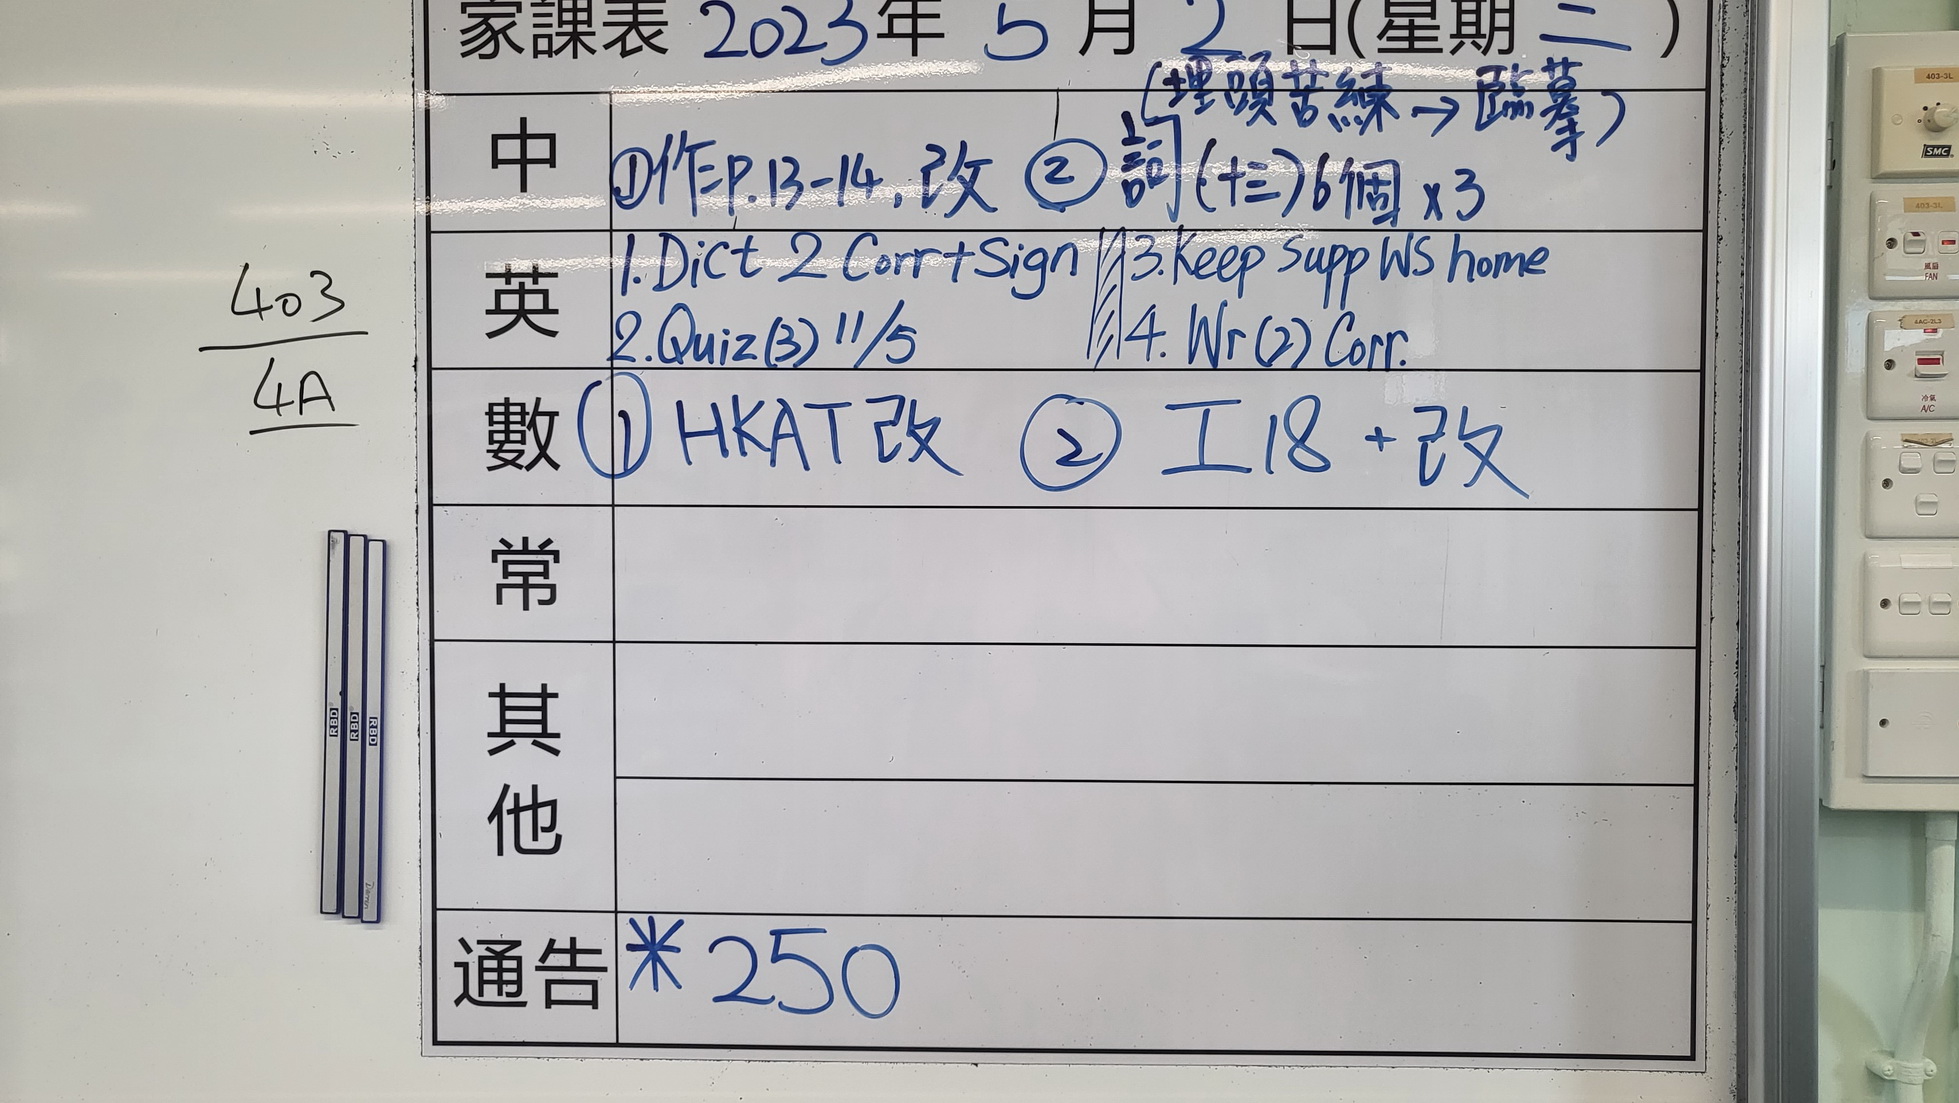 家課表 2023年 5月 2日(星期二)
(埋頭苦練→臨摹)
中 ①作P.13-14,改 ②詞(十三)6個x3
英 1.Dict 2 Corr+Sign 3.Keep Supp WS home
2.Quiz(3) 11/5 4. Wr(2) Corr.
數 ① HKAT改 ② 工18 + 改
常
其他
通告 *250
403
4A
RBD
RBD
RBD
403-3L
SMC
403-3L
風扇
FAN
4AC-2L3
冷氣
A/C